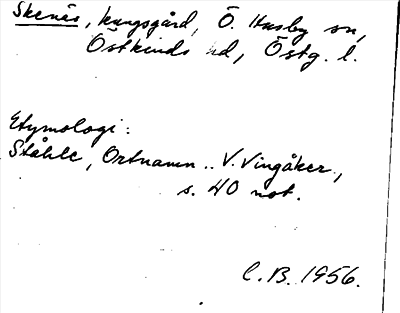 Skenäs, kungsgård, Ö. Husby sn,
Östkinds hd, Östg. l.
Etymologi:
Ståhle, Ortnamn .. V. Vingåker,
s. 40 not.
C.B. 1956.